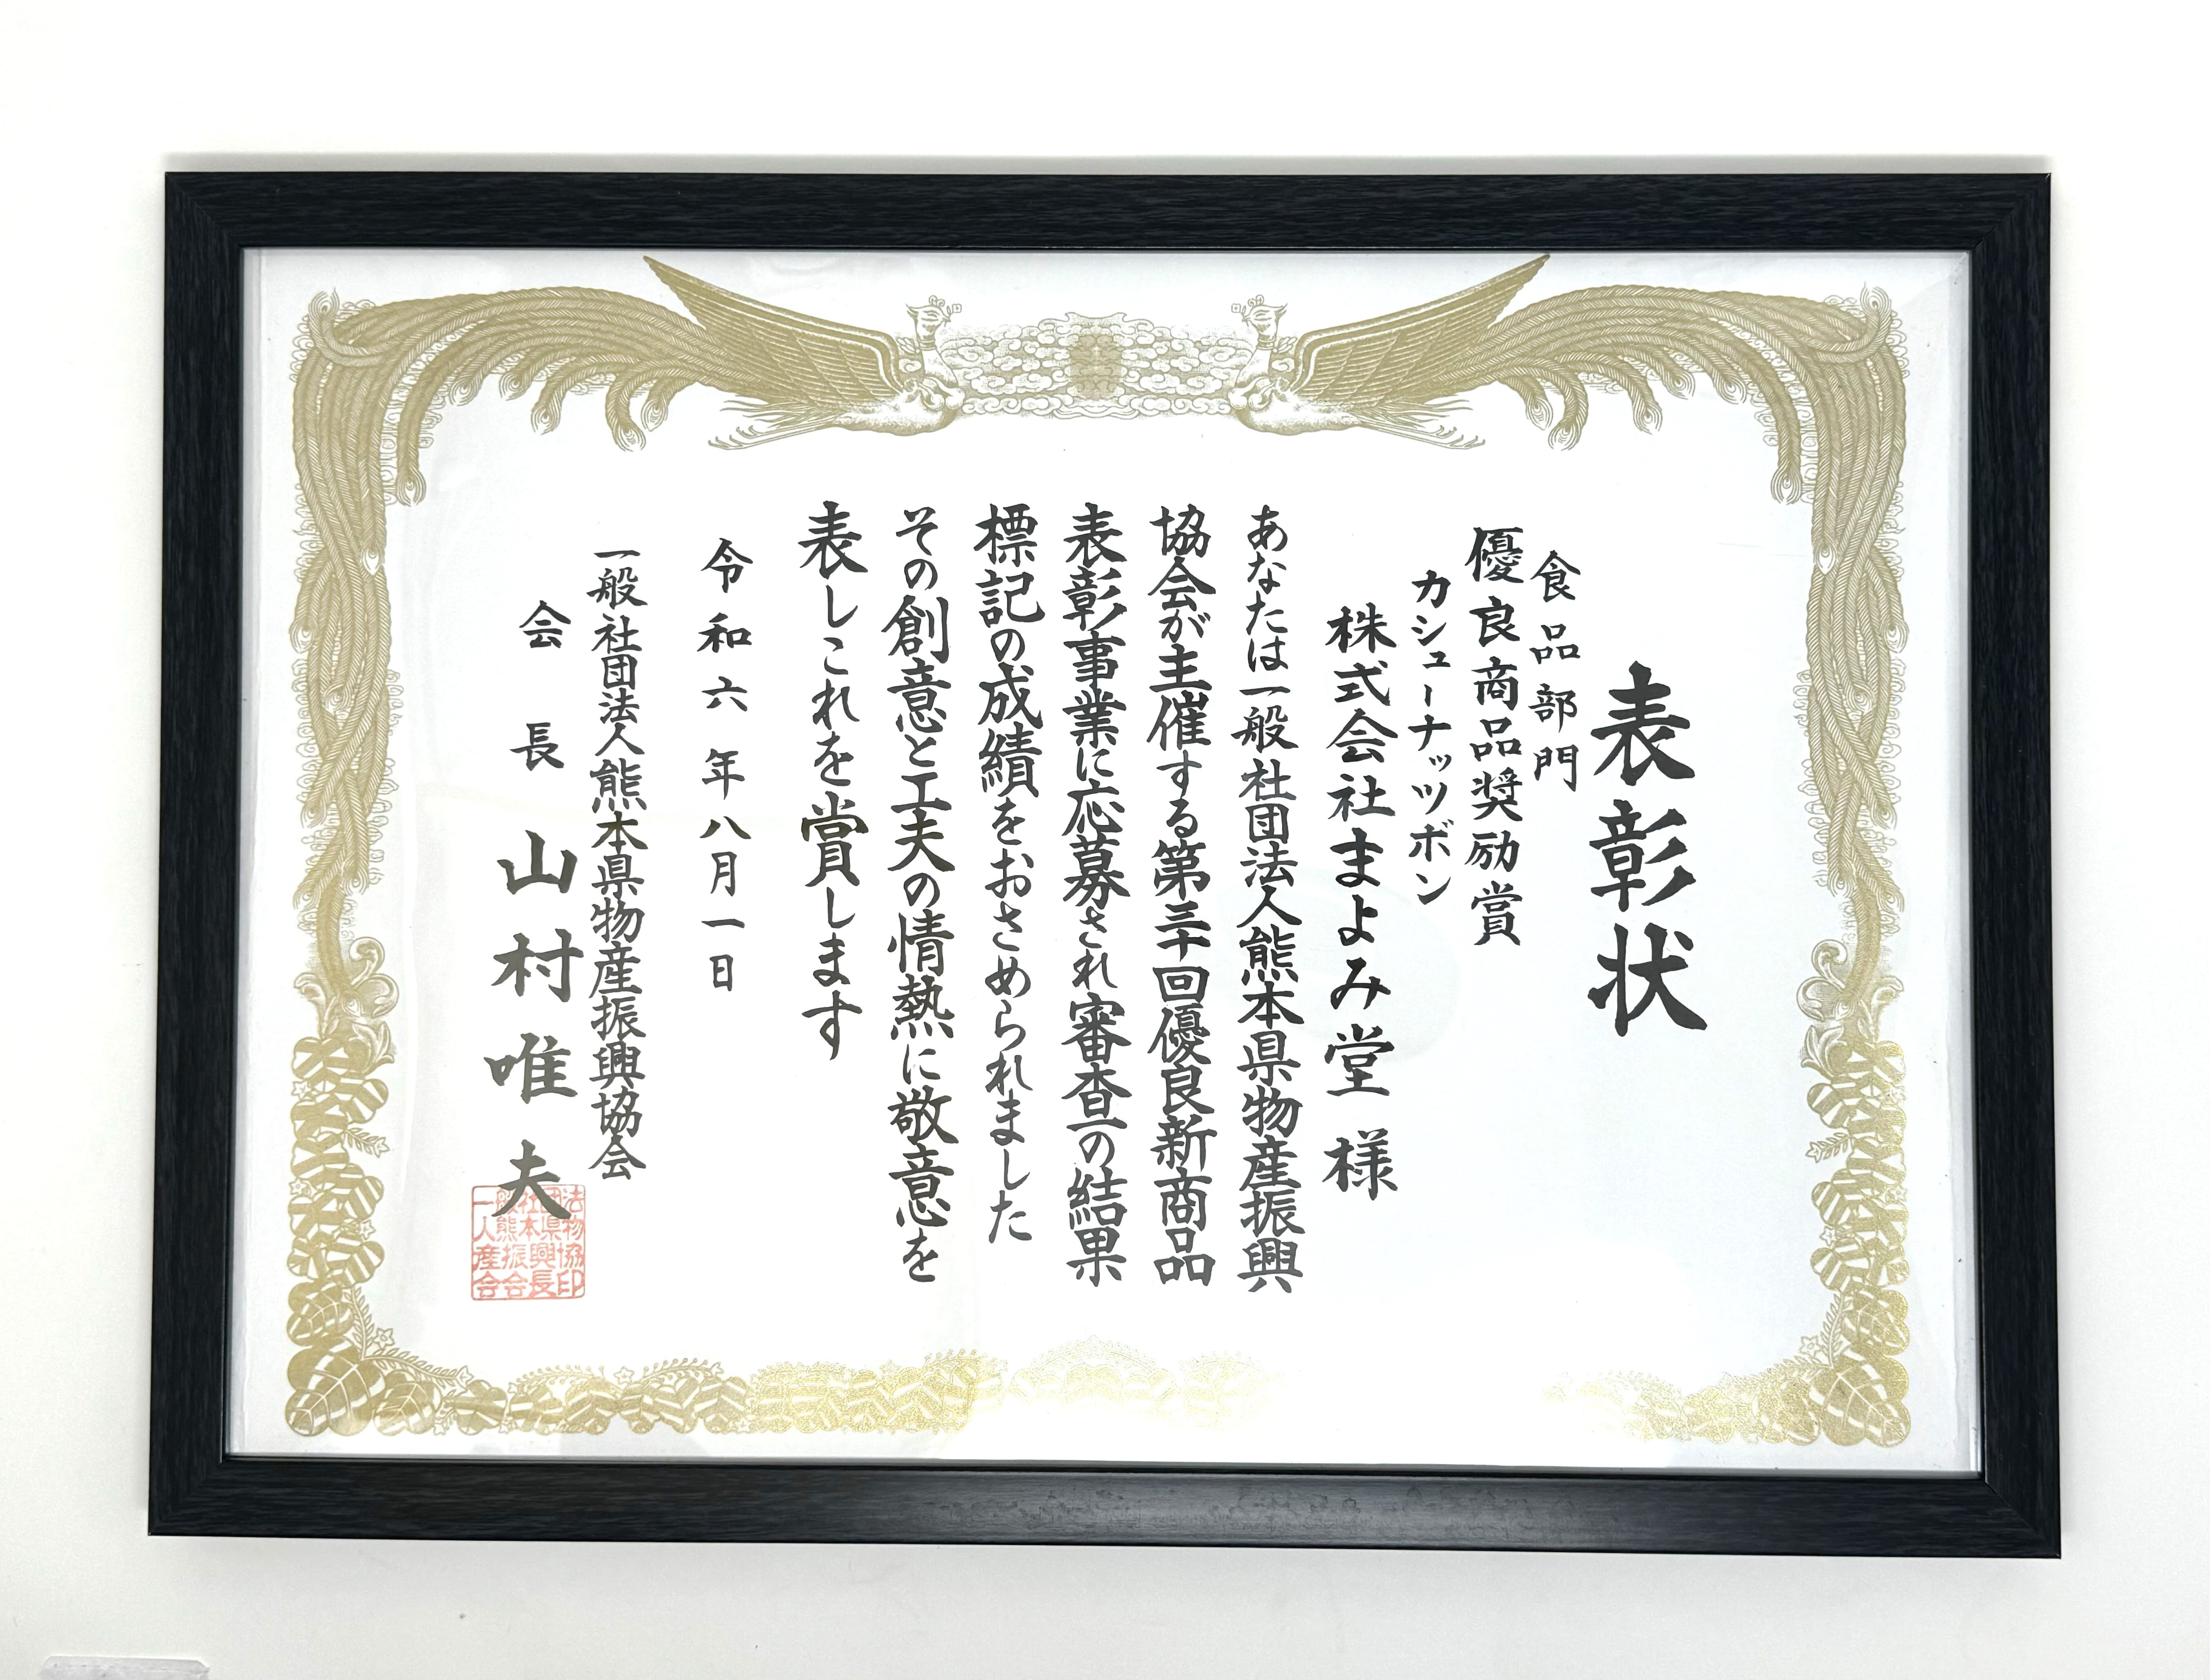 表彰状
食品部門
優良商品奨励賞
カシューナッツボン
株式会社まよみ堂 様
あなたは一般社団法人熊本県物産振興
協会が主催する第三十回優良新商品
表彰事業に応募され審査の結果
標記の成績をおさめられました
その創意と工夫の情熱に敬意を
表しこれを賞します
令和六年八月一日
一般社団法人熊本県物産振興協会
会長 山村唯夫
一般社団法
人熊本県物
産振興協
会会長印